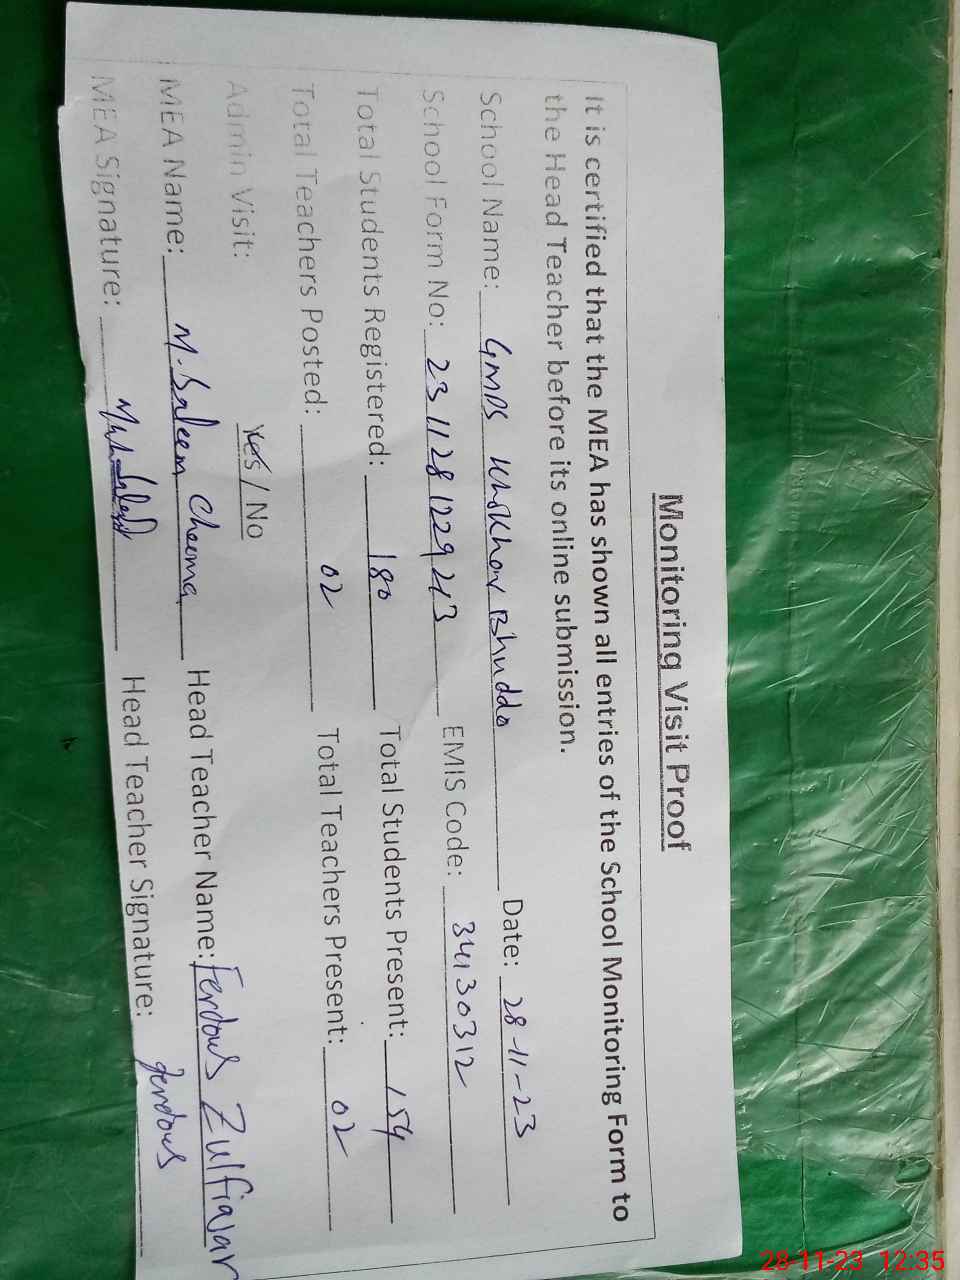 Monitoring Visit Proof
It is certified that the MEA has shown all entries of the School Monitoring Form to
the Head Teacher before its online submission.
School Name: GMPS Khokhar Bhuddo Date: 28-11-23
School Form No: 231128122943 EMIS Code: 34130312
Total Students Registered: 180 Total Students Present: 154
Total Teachers Posted: 02 Total Teachers Present: 02
Admin Visit: Yes / No
MEA Name: M. Saleem Cheema Head Teacher Name: Ferdous Zulfiqar
MEA Signature: Head Teacher Signature: Ferdous
28-11-23 12:35